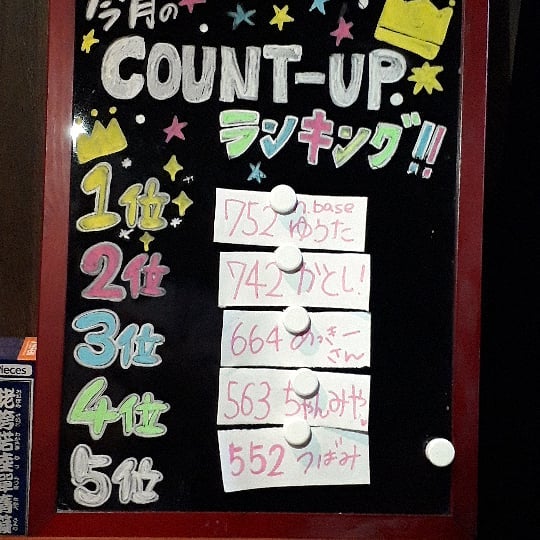 今月の
COUNT-UP
ランキング!!
1位 752 n.base ゆうた
2位 742 かとし!
3位 664 めっきーさん
4位 563 ちゃんみや
5位 552 つばみ
Pieces